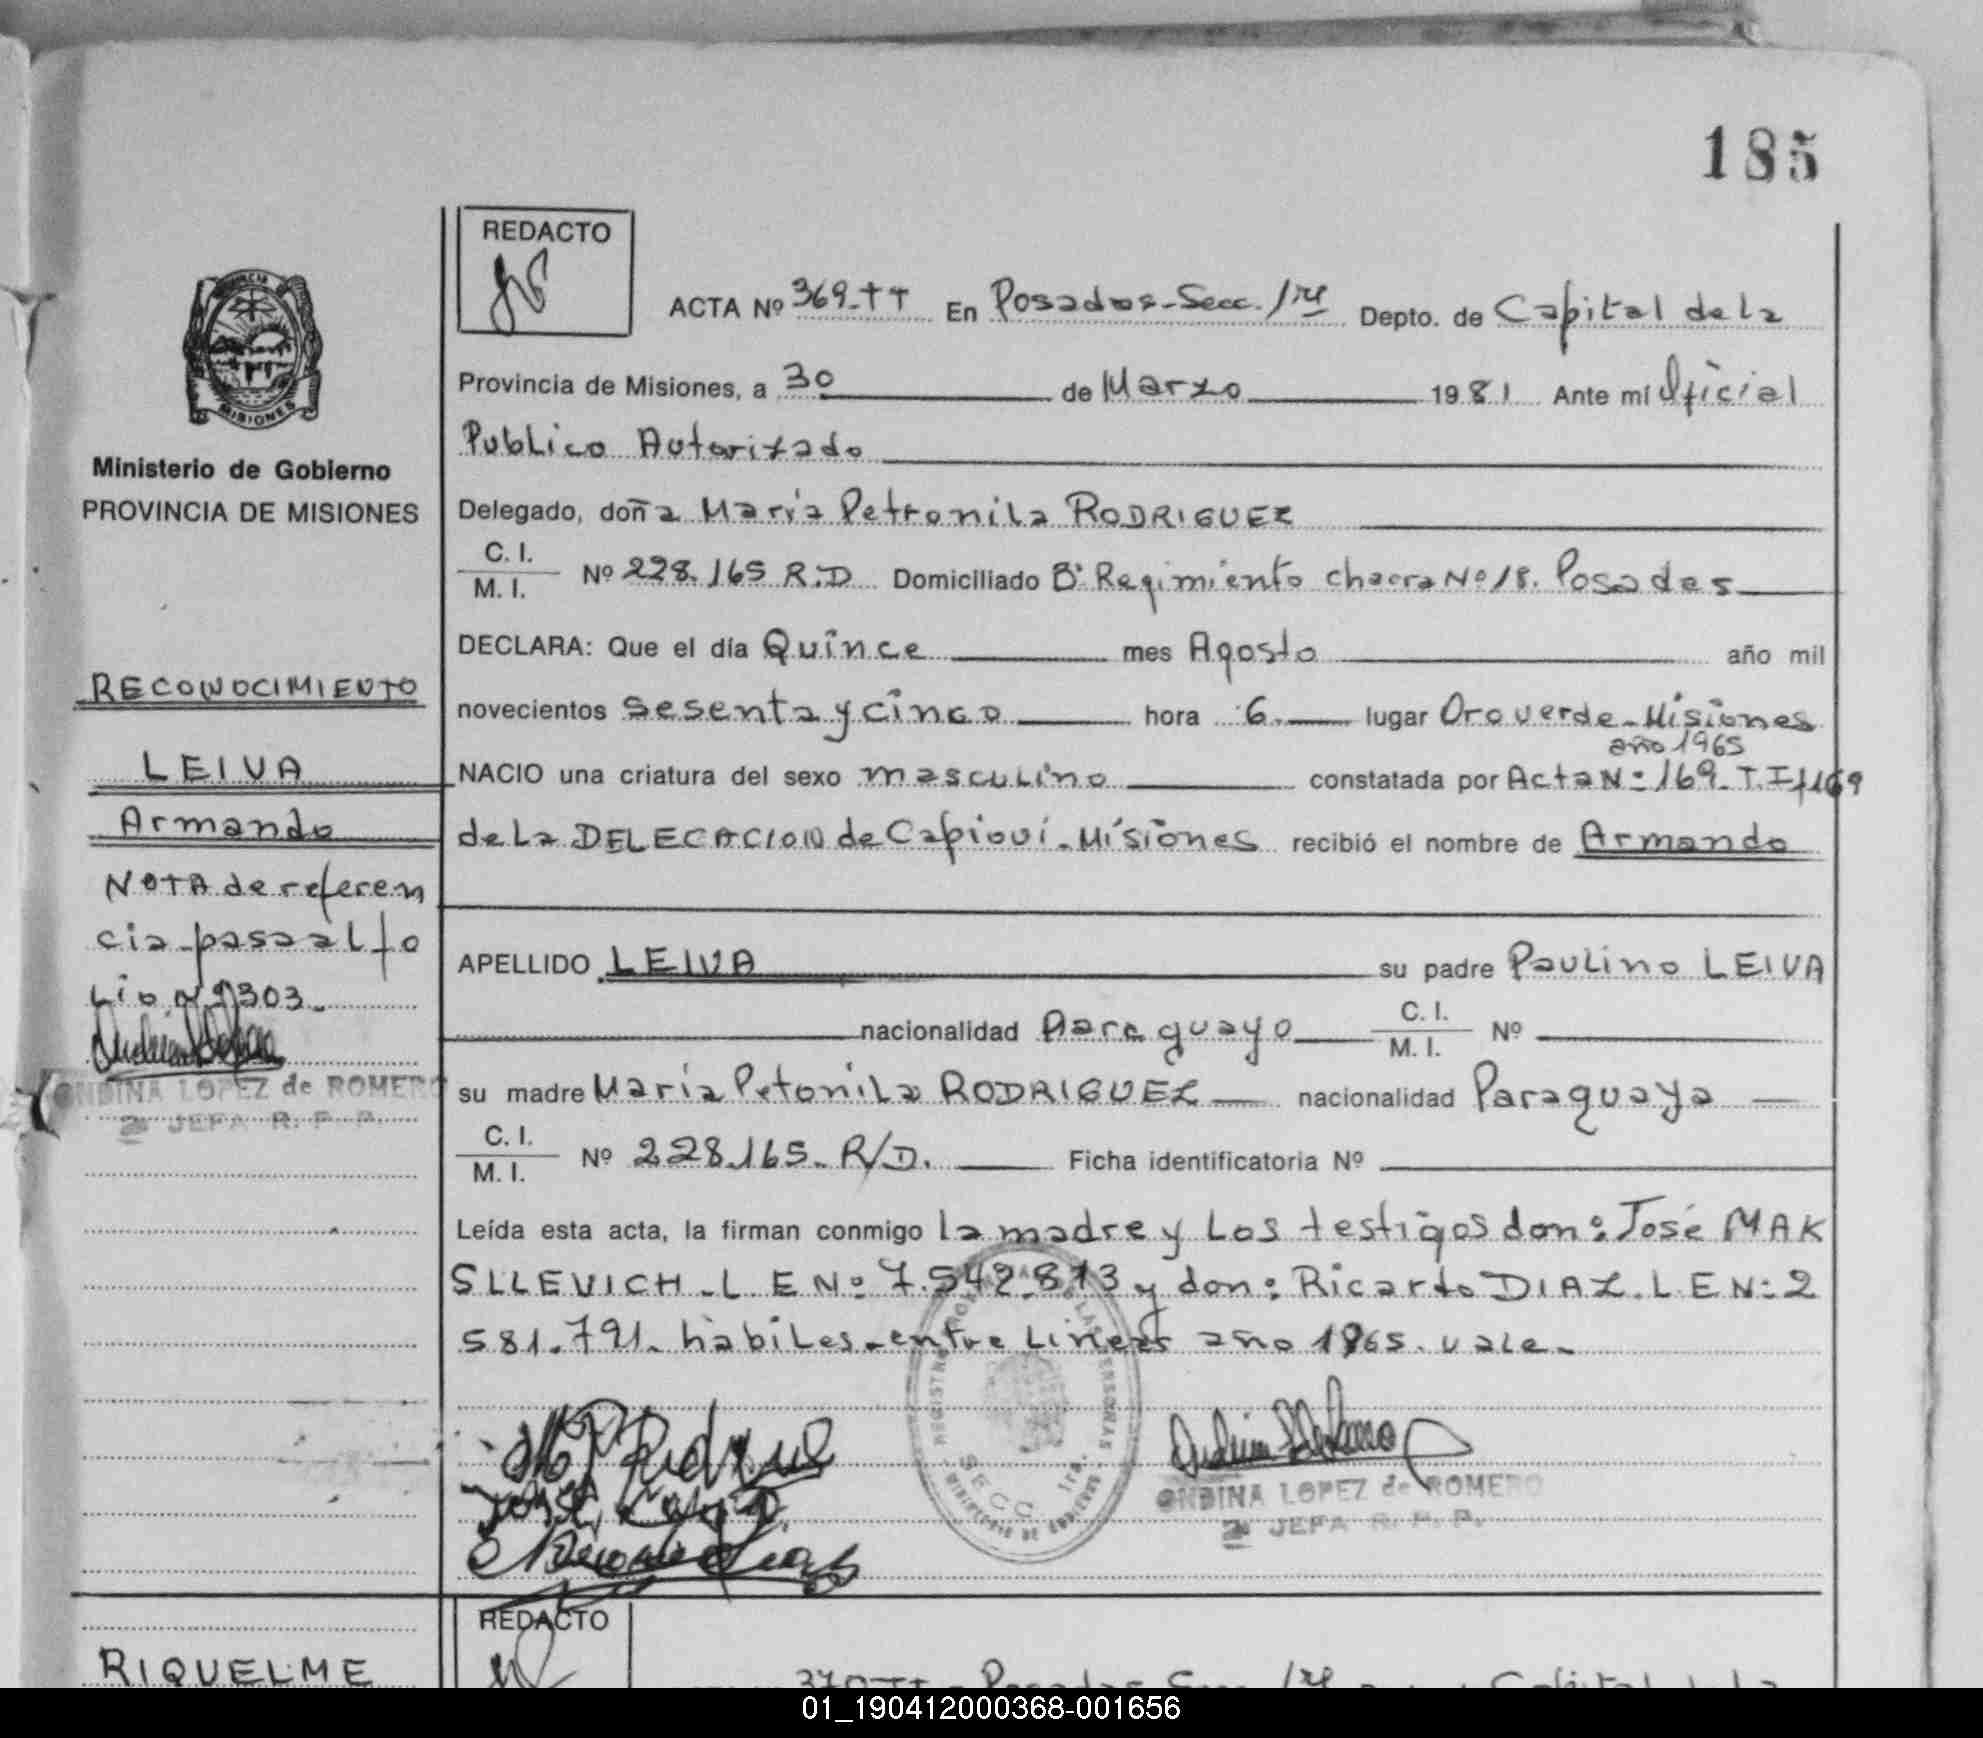 185
REDACTO
ACTA Nº 369-TT En Posadas-Secc. 1ra Depto. de Capital de la
Provincia de Misiones, a 30 de Marzo 1981 Ante mí Oficial
Publico Autorizado
Delegado, doña María Petronila RODRIGUEZ
C. I.
M. I.
Nº 228.165 R.D Domiciliado Bº Regimiento chacra Nº 18. Posadas
DECLARA: Que el día Quince mes Agosto año mil
novecientos sesenta y cinco hora 6 lugar Oro verde-Misiones
año 1965
NACIO una criatura del sexo masculino constatada por Acta Nº 169-T.I f 169
de La DELEGACION de Capioví-Misiones recibió el nombre de Armando
APELLIDO LEIVA su padre Paulino LEIVA
nacionalidad Paraguayo C. I.
M. I. Nº
su madre María Petonila RODRIGUEZ nacionalidad Paraguaya
C. I.
M. I.
Nº 228.165. R/D. Ficha identificatoria Nº
Leída esta acta, la firman conmigo la madre y Los testigos don: José MAK
SLLEVICH-L E Nº 7.542.813 y don: Ricardo DIAZ. L E Nº 2
581.791. habiles-entre Lineas año 1965. vale-
ONDINA LOPEZ de ROMERO
2ª JEFA R. P. P.
SECC. 1ra.
PROVINCIA
MISIONES
Ministerio de Gobierno
PROVINCIA DE MISIONES
RECONOCIMIENTO
LEIVA
Armando
NOTA de referen
cia-pasa al fo
Lio Nº 303-
ONDINA LOPEZ de ROMERO
2ª JEFA R. P. P.
RIQUELME
REDACTO
370-TT-Posadas Secc. 1ra Capital de la
01_190412000368-001656